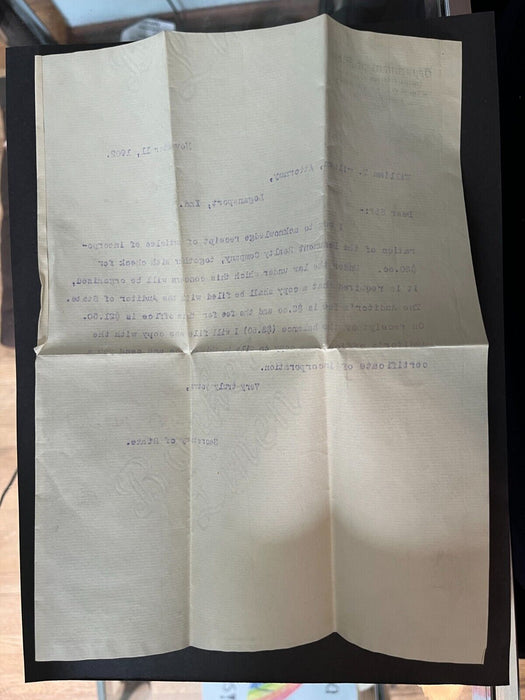 Department of
November 11, 1902.
William T. Wilson, Attorney,
Logansport, Ind.
Dear Sir:-
I beg to acknowledge receipt of articles of incorpo-
ration of the Realty Company, together with check for
$20.oo. Under the law under which this concern will be organized,
it is required that a copy shall be filed with the Auditor of State.
The Auditor's fee is $2.oo and the fee for this office is $21.50.
On receipt of the balance ($3.50) I will file the copy with the
certificate of incorporation.
Very truly yours,
Secretary of State.
Linen